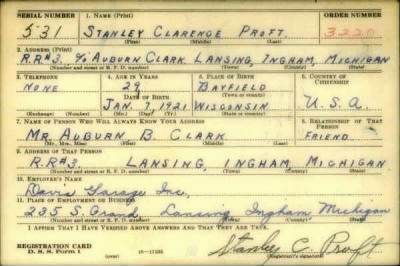 SERIAL NUMBER 1. NAME (Print) ORDER NUMBER
531 STANLEY CLARENCE PROFT. 3220
(First) (Middle) (Last)
2. ADDRESS (Print)
R.R#3, c/o AUBURN CLARK LANSING, INGHAM, MICHIGAN
(Number and street or R. F. D. number) (Town) (County) (State)
3. TELEPHONE 4. AGE IN YEARS 5. PLACE OF BIRTH 6. COUNTRY OF CITIZENSHIP
NONE 29 BAYFIELD
DATE OF BIRTH (Town or county)
JAN. 7, 1921 WISCONSIN U.S.A.
(Exchange) (Number) (Mo.) (Day) (Yr.) (State or country)
7. NAME OF PERSON WHO WILL ALWAYS KNOW YOUR ADDRESS 8. RELATIONSHIP OF THAT PERSON
MR. AUBURN B. CLARK FRIEND
(Mr., Mrs., Miss) (First) (Middle) (Last)
9. ADDRESS OF THAT PERSON
R.R#3. LANSING, INGHAM, MICHIGAN
(Number and street or R. F. D. number) (Town) (County) (State)
10. EMPLOYER'S NAME
Davis Garage Inc,
11. PLACE OF EMPLOYMENT OR BUSINESS
235 S. Grand Lansing Ingham Michigan
(Number and street or R. F. D. number) (Town) (County) (State)
I AFFIRM THAT I HAVE VERIFIED ABOVE ANSWERS AND THAT THEY ARE TRUE.
REGISTRATION CARD
D. S. S. Form 1 (over) 16-17105 Stanley C. Proft
(Registrant's signature)